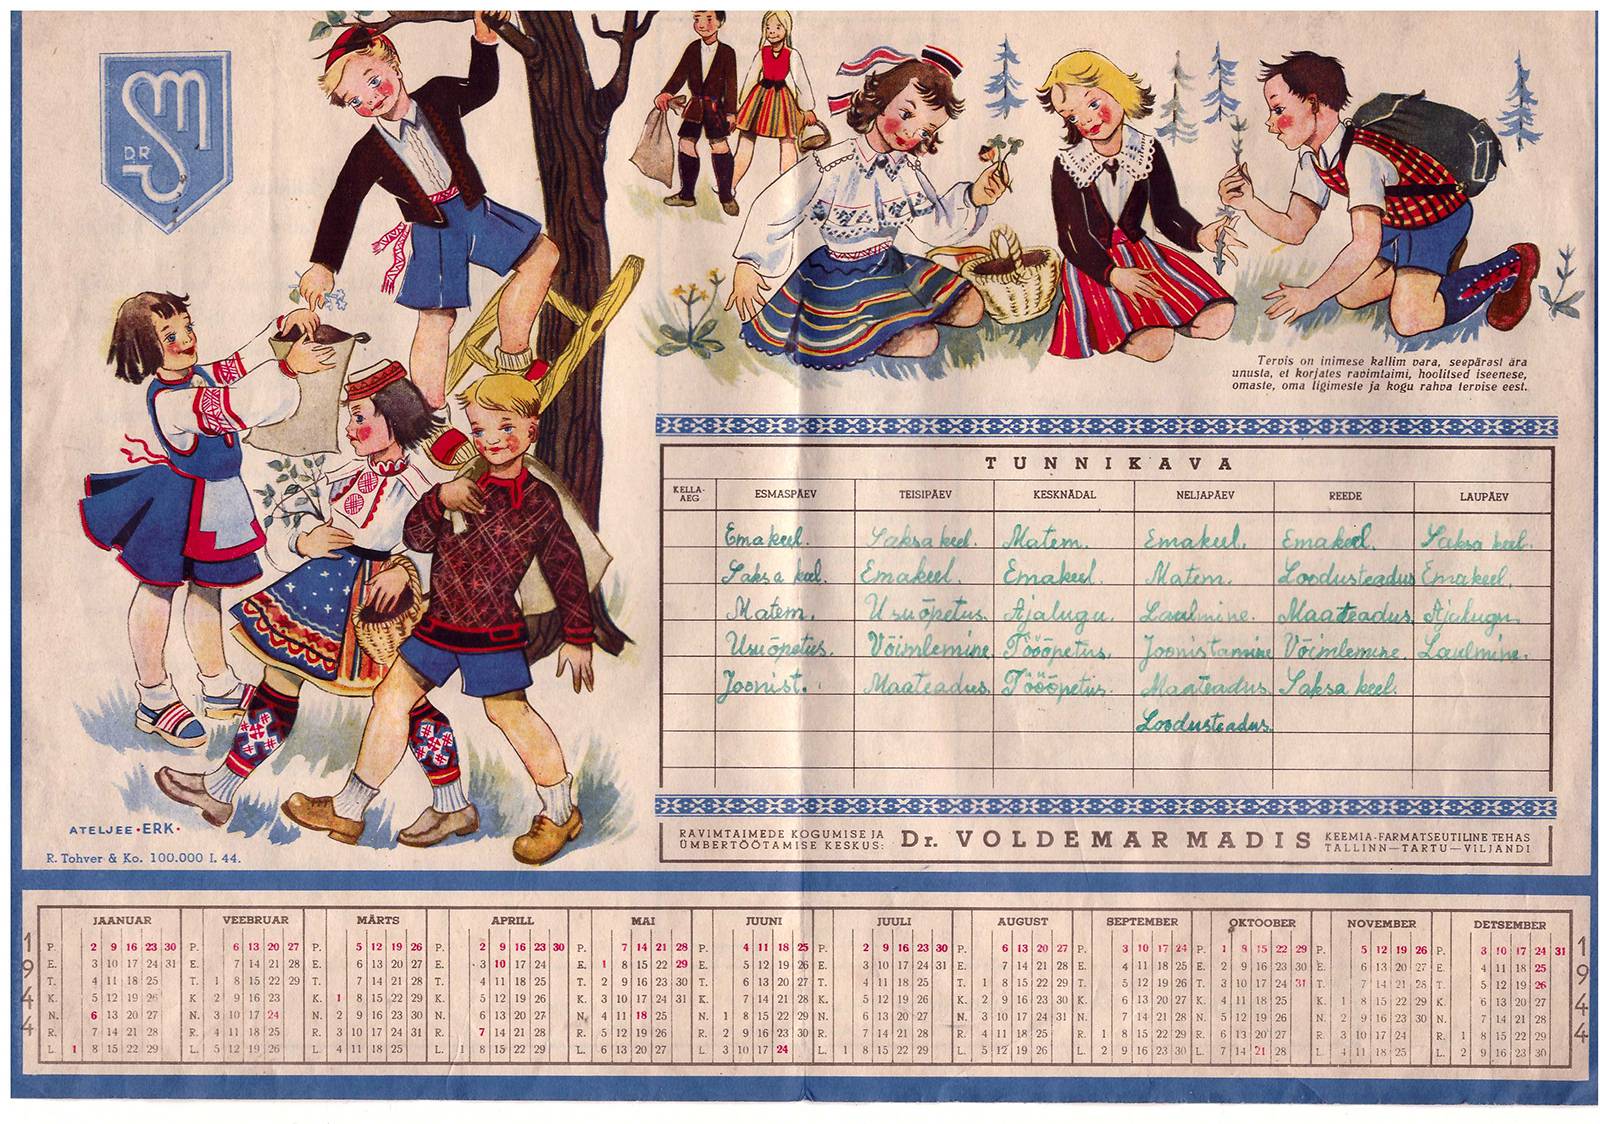 DR SM
Tervis on inimese kallim vara, seepärast ära
unusta, et korjates ravimtaimi, hoolitsed iseenese,
omaste, oma ligimeste ja kogu rahva tervise eest.
TUNNIKAVA
KELLA-AEG ESMASPÄEV TEISIPÄEV KESKNÄDAL NELJAPÄEV REEDE LAUPÄEV
Emakeel. Saksa keel. Matem. Emakeel. Emakeel. Saksa keel.
Saksa keel. Emakeel. Emakeel. Matem. Loodusteadus Emakeel.
Matem. Usuõpetus. Ajalugu. Laulmine. Maateadus. Ajalugu.
Usuõpetus. Võimlemine. Tööõpetus. Joonistamine Võimlemine. Laulmine.
Joonist. Maateadus. Tööõpetus. Maateadus. Saksa keel.
Loodusteadus.
ATELJEE·ERK·
R. Tohver & Ko. 100.000 I. 44.
RAVIMTAIMEDE KOGUMISE JA
ÜMBERTÖÖTAMISE KESKUS: Dr. VOLDEMAR MADIS KEEMIA-FARMATSEUTILINE TEHAS
TALLINN—TARTU—VILJANDI
1944 1944
JAANUAR VEEBRUAR MÄRTS APRILL MAI JUUNI JUULI AUGUST SEPTEMBER OKTOOBER NOVEMBER DETSEMBER
P. 2 9 16 23 30 P. 6 13 20 27 P. 5 12 19 26 P. 2 9 16 23 30 P. 7 14 21 28 P. 4 11 18 25 P. 2 9 16 23 30 P. 6 13 20 27 P. 3 10 17 24 P. 1 8 15 22 29 P. 5 12 19 26 P. 3 10 17 24 31
E. 3 10 17 24 31 E. 7 14 21 28 E. 6 13 20 27 E. 3 10 17 24 E. 1 8 15 22 29 E. 5 12 19 26 E. 3 10 17 24 31 E. 7 14 21 28 E. 4 11 18 25 E. 2 9 16 23 30 E. 6 13 20 27 E. 4 11 18 25
T. 4 11 18 25 T. 1 8 15 22 29 T. 7 14 21 28 T. 4 11 18 25 T. 2 9 16 23 30 T. 6 13 20 27 T. 4 11 18 25 T. 1 8 15 22 29 T. 5 12 19 26 T. 3 10 17 24 31 T. 7 14 21 28 T. 5 12 19 26
K. 5 12 19 26 K. 2 9 16 23 K. 1 8 15 22 29 K. 5 12 19 26 K. 3 10 17 24 31 K. 7 14 21 28 K. 5 12 19 26 K. 2 9 16 23 30 K. 6 13 20 27 K. 4 11 18 25 K. 1 8 15 22 29 K. 6 13 20 27
N. 6 13 20 27 N. 3 10 17 24 N. 2 9 16 23 30 N. 6 13 20 27 N. 4 11 18 25 N. 1 8 15 22 29 N. 6 13 20 27 N. 3 10 17 24 31 N. 7 14 21 28 N. 5 12 19 26 N. 2 9 16 23 30 N. 7 14 21 28
R. 7 14 21 28 R. 4 11 18 25 R. 3 10 17 24 31 R. 7 14 21 28 R. 5 12 19 26 R. 2 9 16 23 30 R. 7 14 21 28 R. 4 11 18 25 R. 1 8 15 22 29 R. 6 13 20 27 R. 3 10 17 24 R. 1 8 15 22 29
L. 1 8 15 22 29 L. 5 12 19 26 L. 4 11 18 25 L. 1 8 15 22 29 L. 6 13 20 27 L. 3 10 17 24 L. 1 8 15 22 29 L. 5 12 19 26 L. 2 9 16 23 30 L. 7 14 21 28 L. 4 11 18 25 L. 2 9 16 23 30